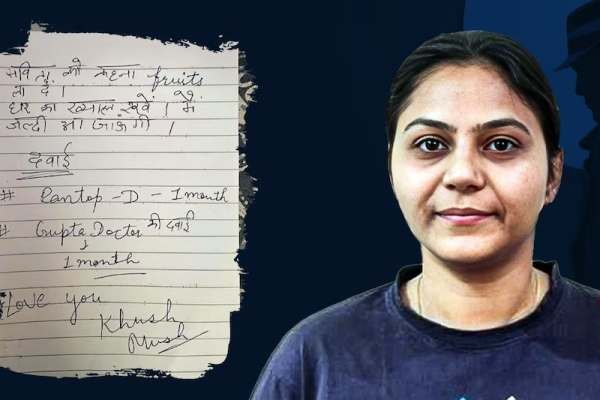 सविता को कहना fruits
ला दे ।
घर का ख्याल रखें । मैं
जल्दी आ जाऊंगी ।
दवाई
# Pantop-D - 1 month
# Gupta Doctor की दवाई
↓
1 month
Love you
Khush